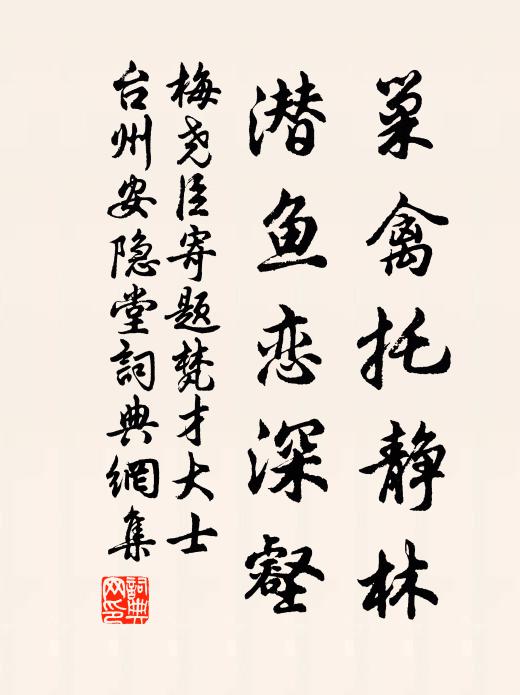 巢禽托静林
潜鱼恋深壑
梅尧臣寄题梵才大士
台州安隐堂詞典網集
詞典
网印